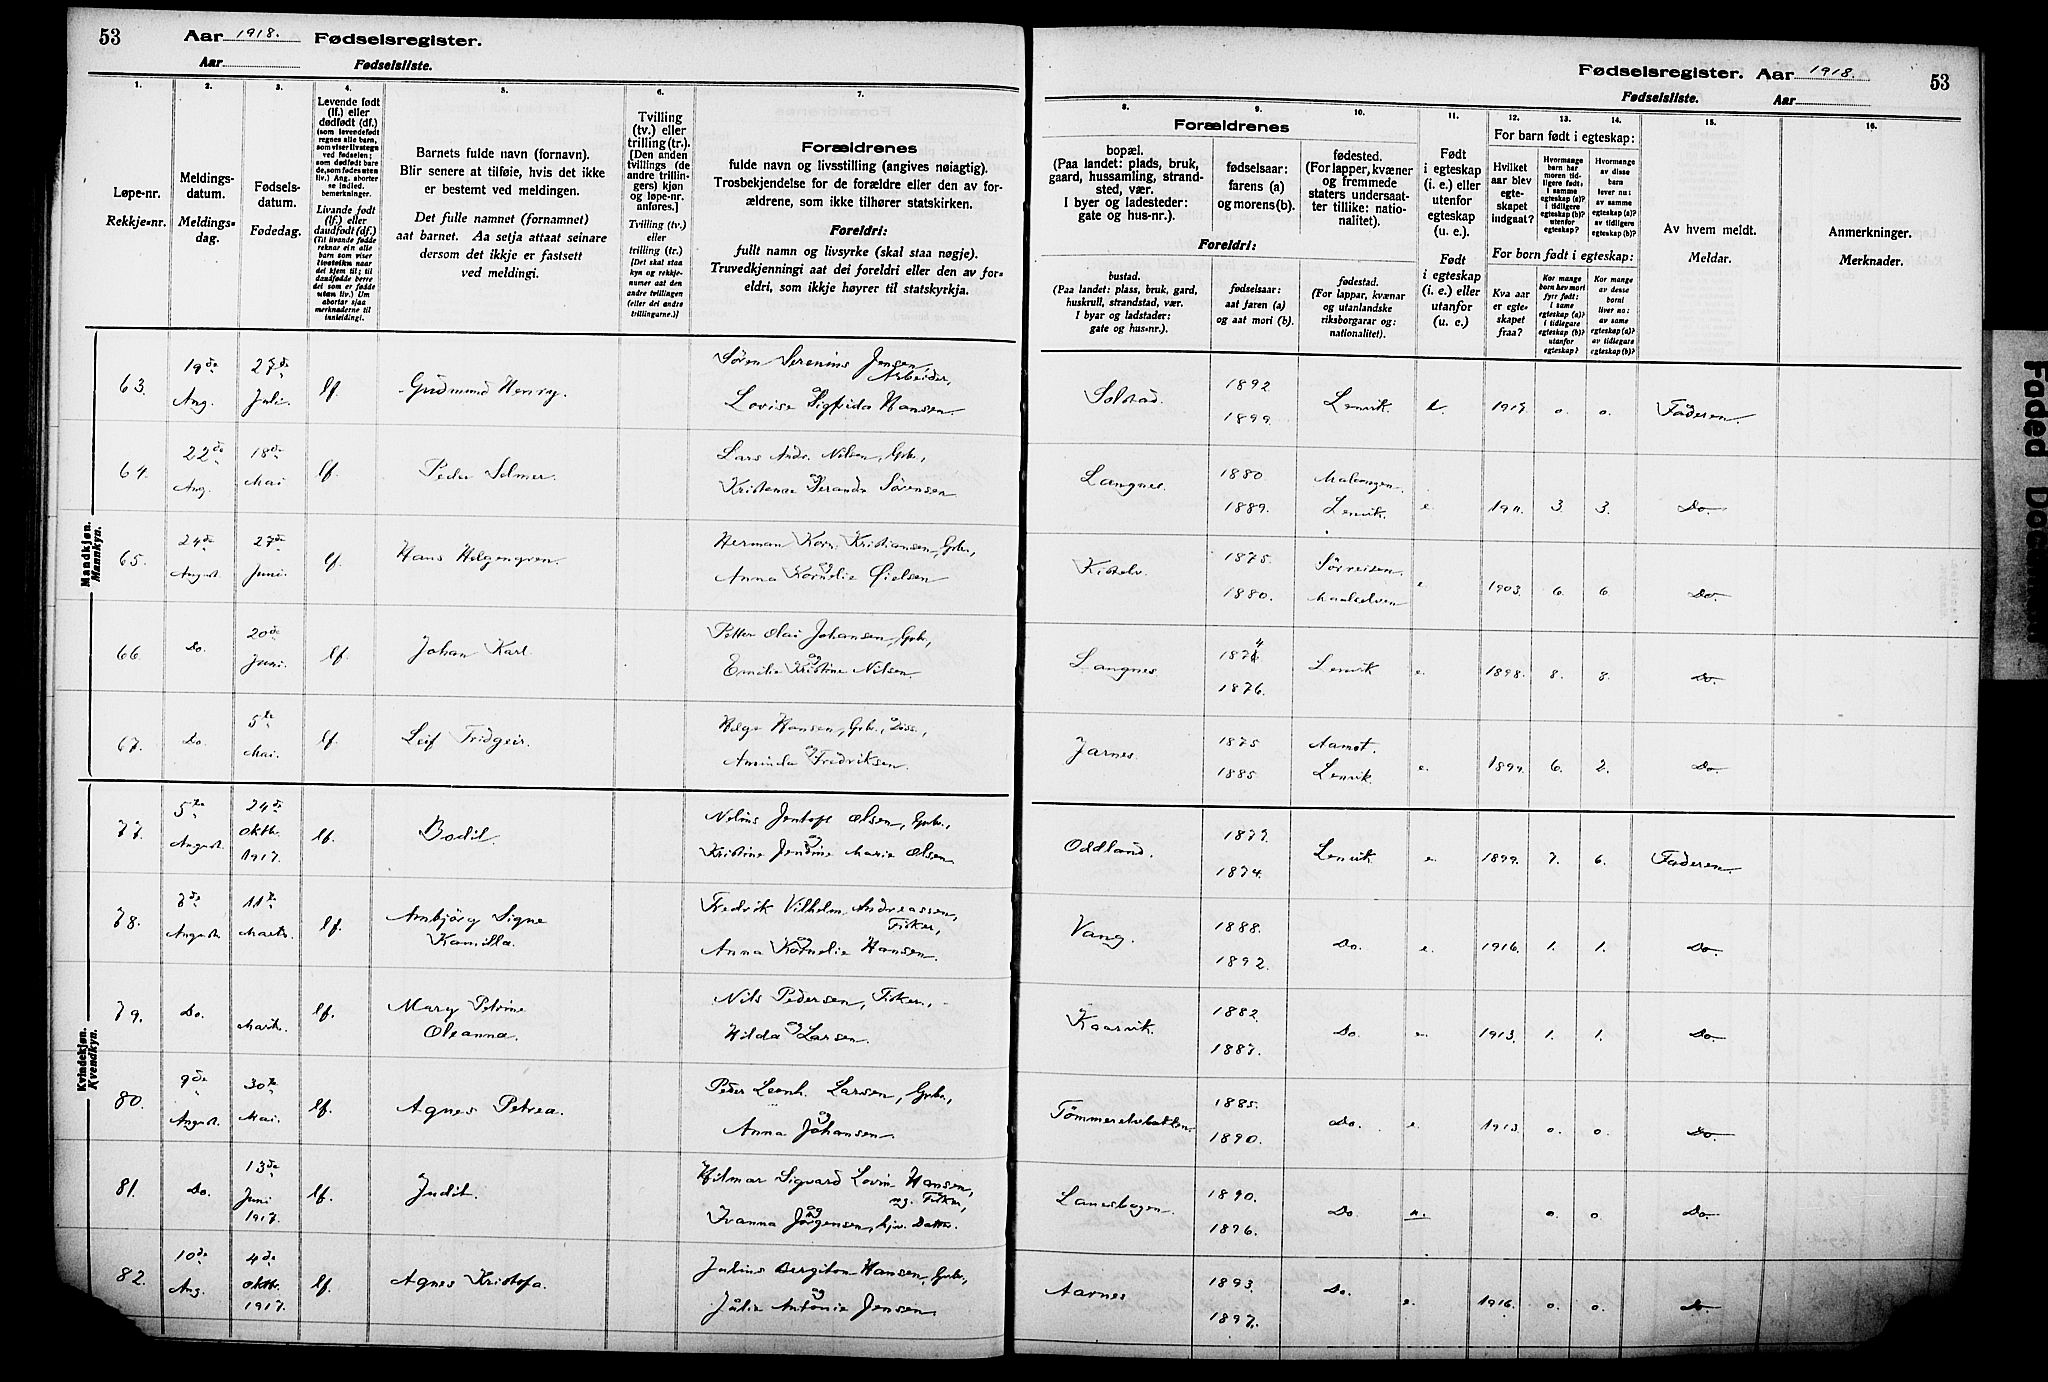 53
Aar 1918. Fødselsregister.
Aar Fødselsliste.
1.
2.
3.
4.
5.
6.
7.
Løpe-nr.
Rekkje-nr.
Meldings-
datum.
Meldings-
dag.
Fødsels-
datum.
Fødedag.
Levende født
(lf.) eller
dødfødt (df.)
(som levendefødt
regnes alle barn,
som viser livstegn
ved fødselen;
som dødfødt bare
de, som fødes uten
liv.) Ang. aborter
se indled.
bemerkninger.
Livande født
(lf.) eller
daudfødt (df.)
(Til livande fødde
reknar ein alle
barn som viser
livsteikn naar
dei kjem til; til
daudfødde berre
dei som er fødde
utan liv.) Um
abortar sjaa
merknaderne til
innleidingi.
Barnets fulde navn (fornavn).
Blir senere at tilføie, hvis det ikke
er bestemt ved meldingen.
Det fulle namnet (fornamnet)
aat barnet. Aa setja attaat seinare
dersom det ikkje er fastsett
ved meldingi.
Tvilling
(tv.) eller
trilling (tr.).
[Den anden
tvillings (de
andre trillin-
gers) kjøn
og løpe-nr.
anføres.]
Tvilling (tv.)
eller
trilling (tr.)
[Det skal staa
kyn og rekkje-
numer aat den
andre tvillingen
(eller dei andre
trillingarne.)]
Forældrenes
fulde navn og livsstilling (angives nøiagtig).
Trosbekjendelse for de forældre eller den av for-
ældrene, som ikke tilhører statskirken.
Foreldri:
fullt namn og livsyrke (skal staa nøgje).
Truvedkjenningi aat dei foreldri eller den av for-
eldri, som ikkje høyrer til statskyrkja.
Fødselsregister. Aar 1918.
53
Fødselsliste. Aar
8.
9.
10.
11.
12.
13.
14.
15.
16.
Forældrenes
bopæl.
(Paa landet: plads, bruk,
gaard, hussamling, strand-
sted, vær.
I byer og ladesteder:
gate og hus-nr.).
fødselsaar:
farens (a)
og morens (b).
fødested.
(For lapper, kvæner
og fremmede
staters undersaat-
ter tillike: natio-
nalitet).
Foreldri:
bustad.
(Paa landet: plass, bruk, gard,
huskrull, strandstad, vær.
I byar og ladstader:
gate og hus-nr.).
fødselsaar:
aat faren (a)
og aat mori (b).
fødestad.
(For lappar, kvænar
og utanlandske
riksborgarar og:
nationalitet).
Født
i egteskap
(i. e.) eller
utenfor
egteskap
(u. e.).
Født
i egteskap
(i. e.) eller
utanfor
(u. e.)
For barn født i egteskap:
Hvilket
aar blev
egte-
skapet
indgaat?
Hvormange
barn har
moren tid-
ligere født:
i samme
egteskap (a)?
i tidligere
egteskap (b)?
utenfor
egteskap?
Hvormange
av disse
barn
lever nu:
av samme
egteskap (a)?
av tidligere
egteskap (b)?
For born født i egteskap:
Kva aar
er egte-
skapet
fraa?
Kor mange
born hev mori
fyrr født:
i same
egteskap (a)?
i tidlegare
egteskap (b)?
utanfor
egteskap?
Kor mange
av desse
borni
liver no:
av same
egteskap (a)?
av tidlegare
egteskap (b)?
Av hvem meldt.
Meldar.
Anmerkninger.
Merknader.
Mandkjøn.
Mannkyn.
63. 19de Aug. 27de Juli. lf. Gudmund Henry. Sören Serenius Jensen Arbeider, og Lovise Sigfrida Hansen Solstad. 1892 1899. Lenvik. e. 1917. 0. 0. Faderen.
64. 22de Aug. 18de Mai lf. Peder Selmer. Lars Andr. Nilsen, Gbr., og Kristense Veranda Sörensen Langnes. 1880 1889. Malangen. Lenvik. e. 1911. 3. 3. Do.
65. 24de August. 27de Juni. lf. Hans Helgengren. Herman Korn. Kristiansen, Gbr., og Anna Kornelie Gielsen Kistelv. 1875. 1880. Sörreisen. Maalselven e. 1903. 6. 6. Do.
66. Do. 20de Juni. lf. Johan Karl. Petter Olai Johansen, Gbr., og Emilie Kristine Nilsen. Langnes. 1874 1876. Lenvik e. 1898. 8. 8. Do.
67. Do. 5te Mai. lf. Leif Fridgeir. Helge Hansen, Gbr., Diss., og Aminda Fredriksen. Jarnes. 1875 1885. Aamot. Lenvik. e. 1899. 6. 2. Do.
Kvindekjøn.
Kvendkyn.
77. 5te August. 24de Oktbr. 1917. lf. Bodil. Nelius Jentoft Olsen, Gbr., og Kristine Jensine Marie Olsen. Oddland. 1877. 1874. Lenvik e. 1899. 7. 6. Faderen.
78. 7de August. 11te Marts. lf. Arnbjörg Signe Kamilla. Fredrik Vilhelm Andreassen, Fisker, og Anna Kornelie Hansen. Vang. 1888. 1892. Do. e. 1916. 1. 1. Do.
79. Do. Marts. lf. Mary Petrine Oleanna. Nils Pedersen, Fisker, og Hilda Larsen. Kaarvik. 1882. 1887. Do. e. 1913. 1. 1. Do.
80. 9de August. 30te Mai. lf. Agnes Petrea. Peder Leonh. Larsen, Gbr., og Anna Johansen. Tömmerelvbotten. 1885. 1890. Do. e. 1913. 0. 0. Do.
81. Do. 13de Juni 1917. lf. Judit. Hilmar Sigvard Lovin Hansen, ug. Fisker, og Ivanna Jörgensen, hjv. Datter. Lanesbogen. 1890. 1896. Do. u. 0. 0. Do.
82. 10de Aug. 4de Oktbr. 1917. lf. Agnes Kristofa. Julius Bergiton Hansen, Gbr., og Jülie Antonie Jensen. Aarnes 1893. 1897. Do. e. 1916. 0. 0. Do.